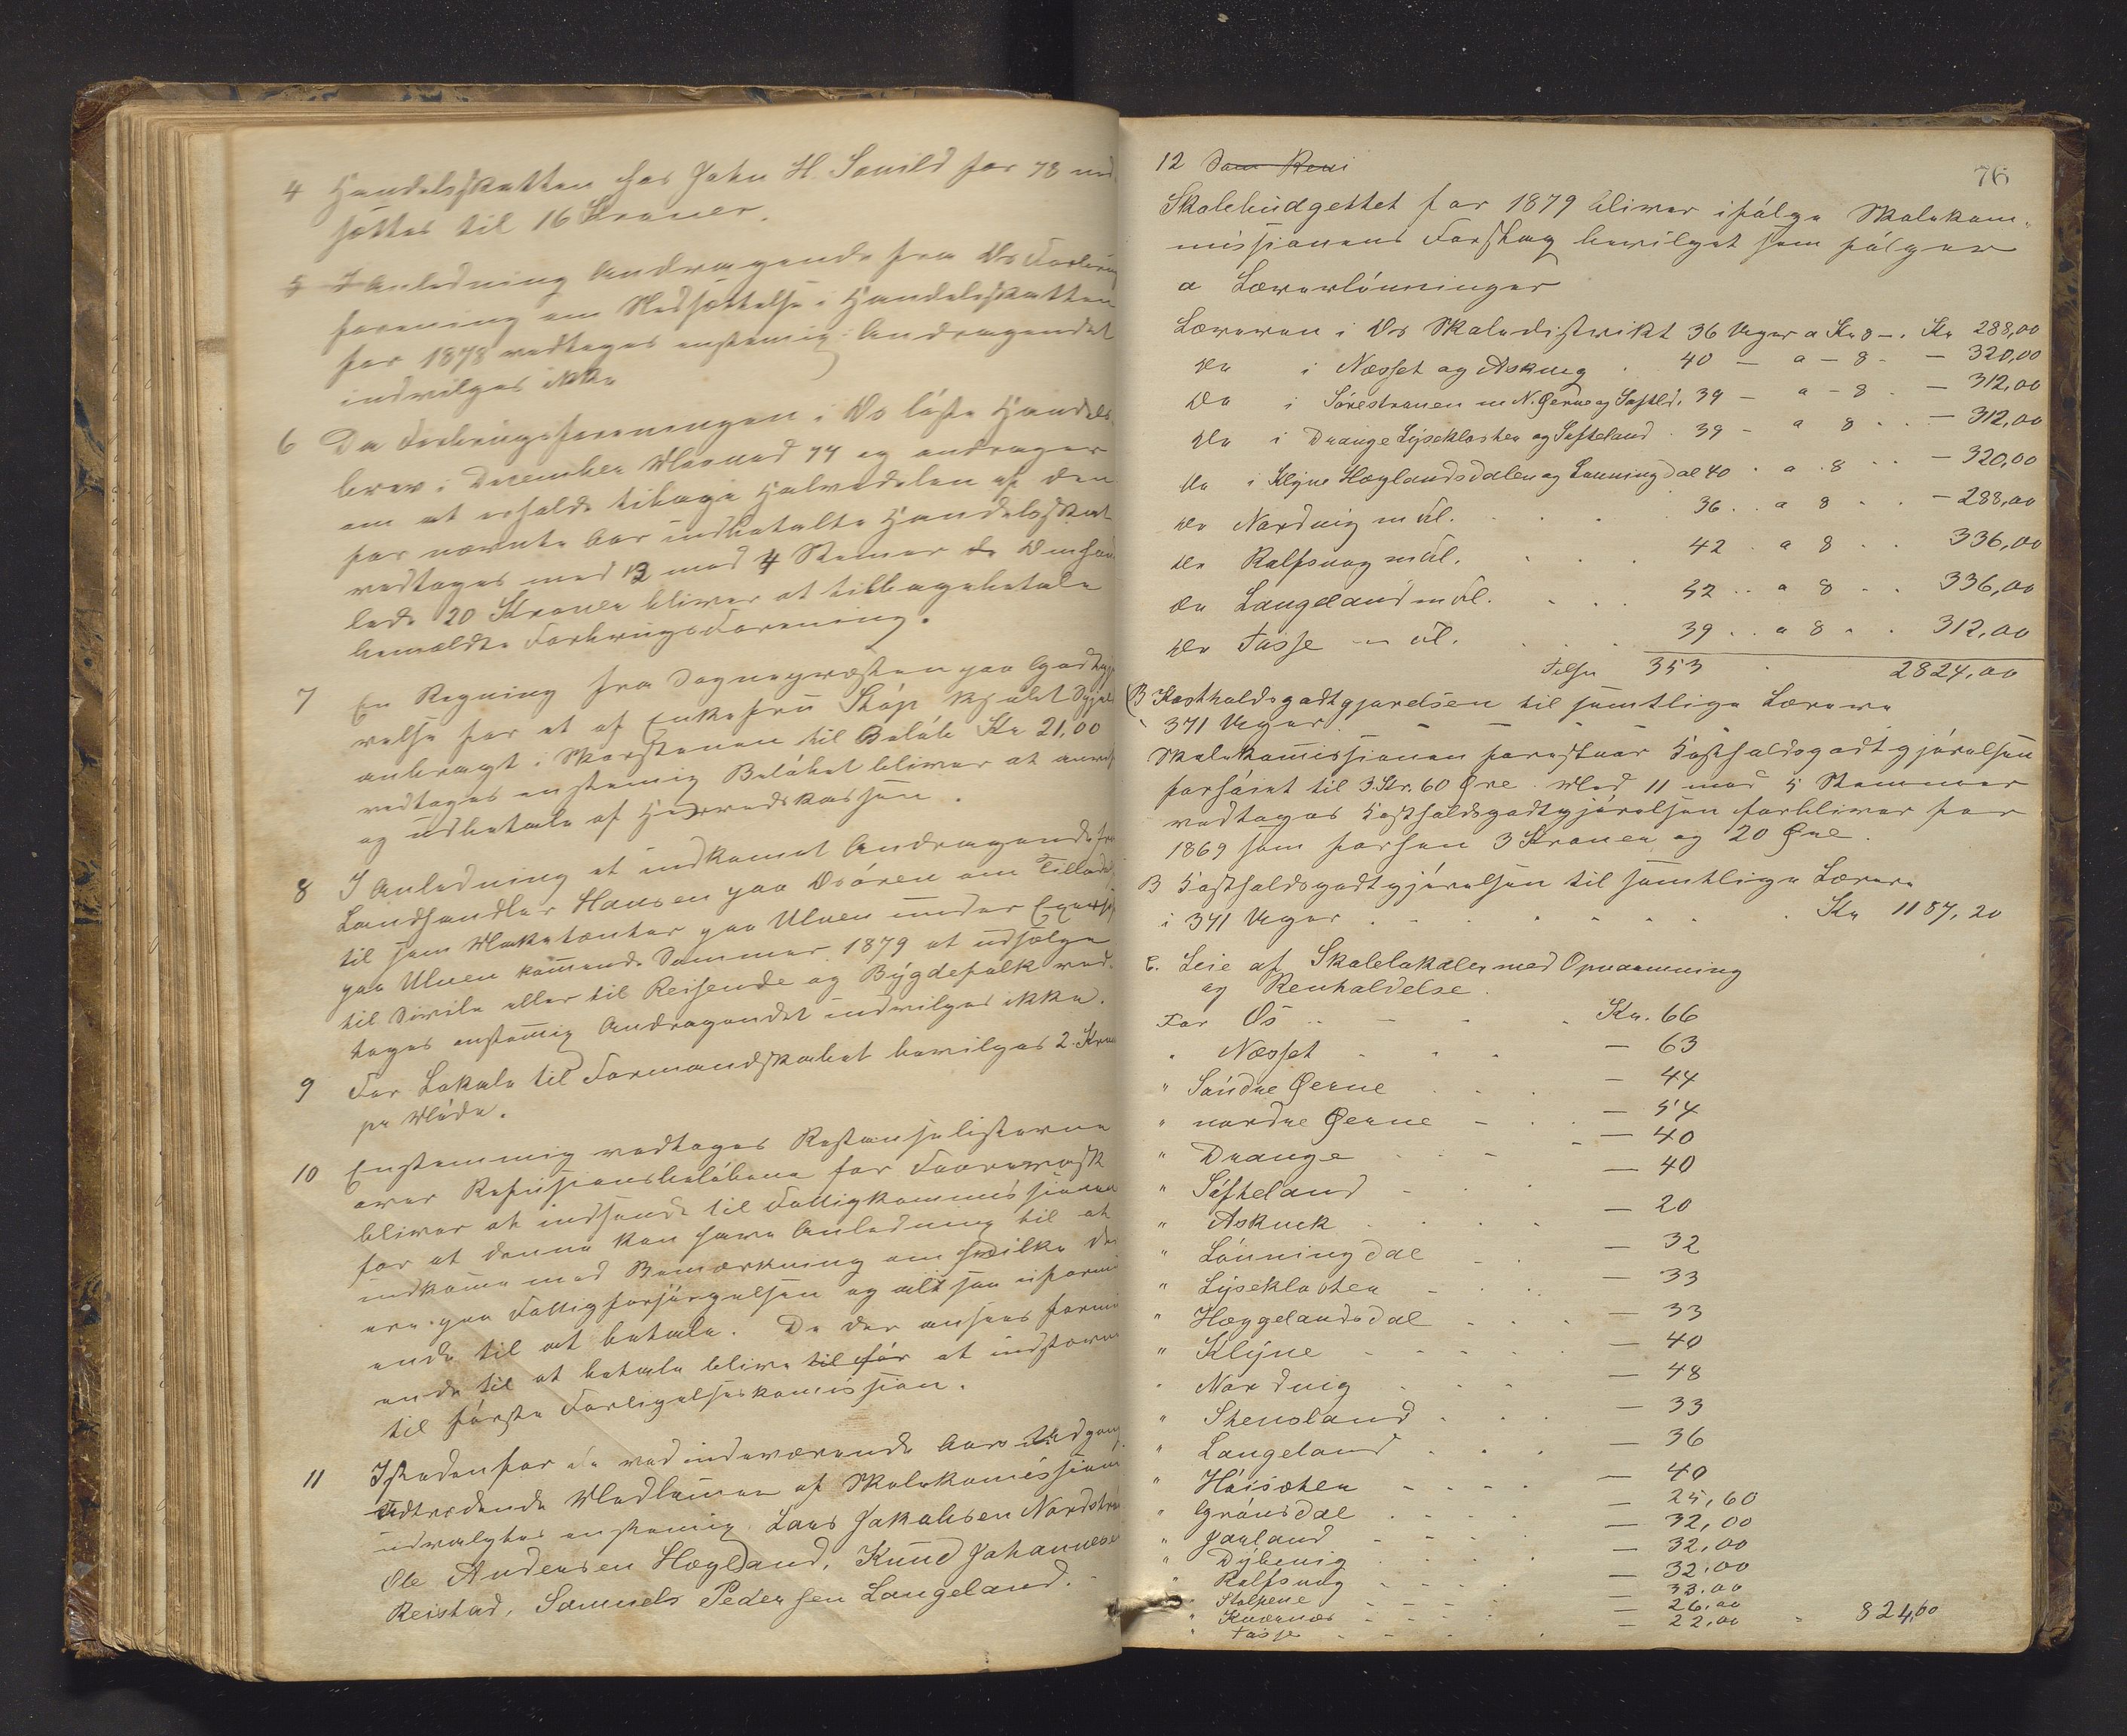 4 Handelsskatten for John H. Søvild for 78 ned
sættes til 16 Kroner.
5 I Anledning Andragende fra Os Forbrugs
forening om Nedsættelse i Handelsskatten
for 1878 vedtages enstemig: Andragendet
indvilges ikke
6 Da Forbrugsforeningen i Os løste Handels
brev i December Maaned 77 og andrager
om at erholde tilbage Halvedelen af den
for nævnte Aar indbetalte Handelsskat
vedtages med 13 mod 4 Stemer de Omhand
lede 20 Kroner bliver at tilbagebetale
bemældte Forbrugsforening.
7 En Regning fra Sognepræsten paa Godtgjø
relse for et af Enkefru
anbragt i Skorstenen til Beløb Kr 21,00
vedtages enstemig Beløbet bliver at anvise
og udbetale af Herredskassen.
8 I Anledning et indkomet Andragende fra
Landhandler Hansen paa Osøren om Tilladelse
til som Marketenter paa Ulven under Exersis
paa Ulven kommende Sommer 1879 at udsælge
til Sivile eller til Reisende og Bygdefolk ved
tages enstemig Andragendet indvilges ikke.
9 For Lokale til Formandskabet bevilges 2 Kroner
pr Møde.
10 Enstemmig vedtages Restanselisterne
over Refusionsbeløbene for
bliver at indsende til Fattigkommissionen
for at denne kan have Anledning til at
indkome med Bemærkning om hvilke der
ere paa Fattigforsørgelsen og altsaa uformu
ende til at betale. De der ansees formu
ende til at betale blive til før at indstævne
til første Forligelseskomission.
11 Istedenfor de ved indeværende Aars Udgang
udtrædende Medlemer af Skolekomissionen
indvalgtes enstemig Lars Jakobsen Nordstrøno
Ole Andersen Hægland, Knud Johannesen
Reistad, Samuels Pedersen Langeland.
76
12 Som Revi
Skolebudgettet for 1879 bliver ifølge Skolekom-
missionens Forslag bevilget som følger
a Lærerlønninger
Læreren i Os Skoledistrikt 36 Uger a Kr 8 -. Kr 288,00
do i Næsset og Askvig . 40 — a — 8 - — 320,00
do i Sørestranen m N. Øerne og Søftld. 39 — a - 8 - — 312,00
do i Drange Lysekloster og Søfteland . 39 - a 8 - - — 312,00
do i Klyne Hæglandsdalen og Lønningdal 40 - a . 8 - - — 320,00
do Nordvig m fl. . . . 36 . . a 8 - - — 288,00
do Rolfsvog m fl. . . . 42 . a 8 - - 336,00
do Langeland m fl. . . . 42 . . a 8 - - 336,00
do Tøsse m fl. . . . 39 . . a 8 - - 312,00
Tilsm 353 . 2824,00
(B Kostholdsgodtgjørelsen til samtlige Lærere
371 Uger. — — — —
Skolekomissionen foreslaar Kostholdsgodtgjørelsen
forhøiet til 3 Kr. 60 Øre. Med 11 mod 5 Stemmer
vedtages Kostholdsgodtgjørelsen forbliver for
1869 som forhen 3 Kroner og 20 Øre.
B Kostholdsgodtgjørelsen til samtlige Lærere
i 341 Uger . . . . . . . Kr 1187,20
C. Leie af Skolelokaler med Opvarmning
og Renholdelse.
For Os .. — - . Kr. 66
" Næsset - - - — 63
" Søndre Øerne . . — 44
" nordre Øerne - . . — 54
" Drange . . - - — 40
" Søfteland - . . — 40
" Askvik . . . . — 20
" Lønningdal - . — 32
" Lysekloster - . . — 33
" Hæggelandsdal - - . — 33
" Klyne - - - - — 40
" Nordvig . . . — 48
" Stensland . . . — 33
" Langeland . . . — 36
" Høisæter - - - - — 40
" Grønsdal . . . . — 25,60
" Jarland - - - - — 32,00
" Dybevig . . . . — 32,00
" Rolfsvog - - - - — 32,00
" - - - - — 33.00
" - - - - — 26,00
" Tøsse - - - . — 22,00 - 824,60